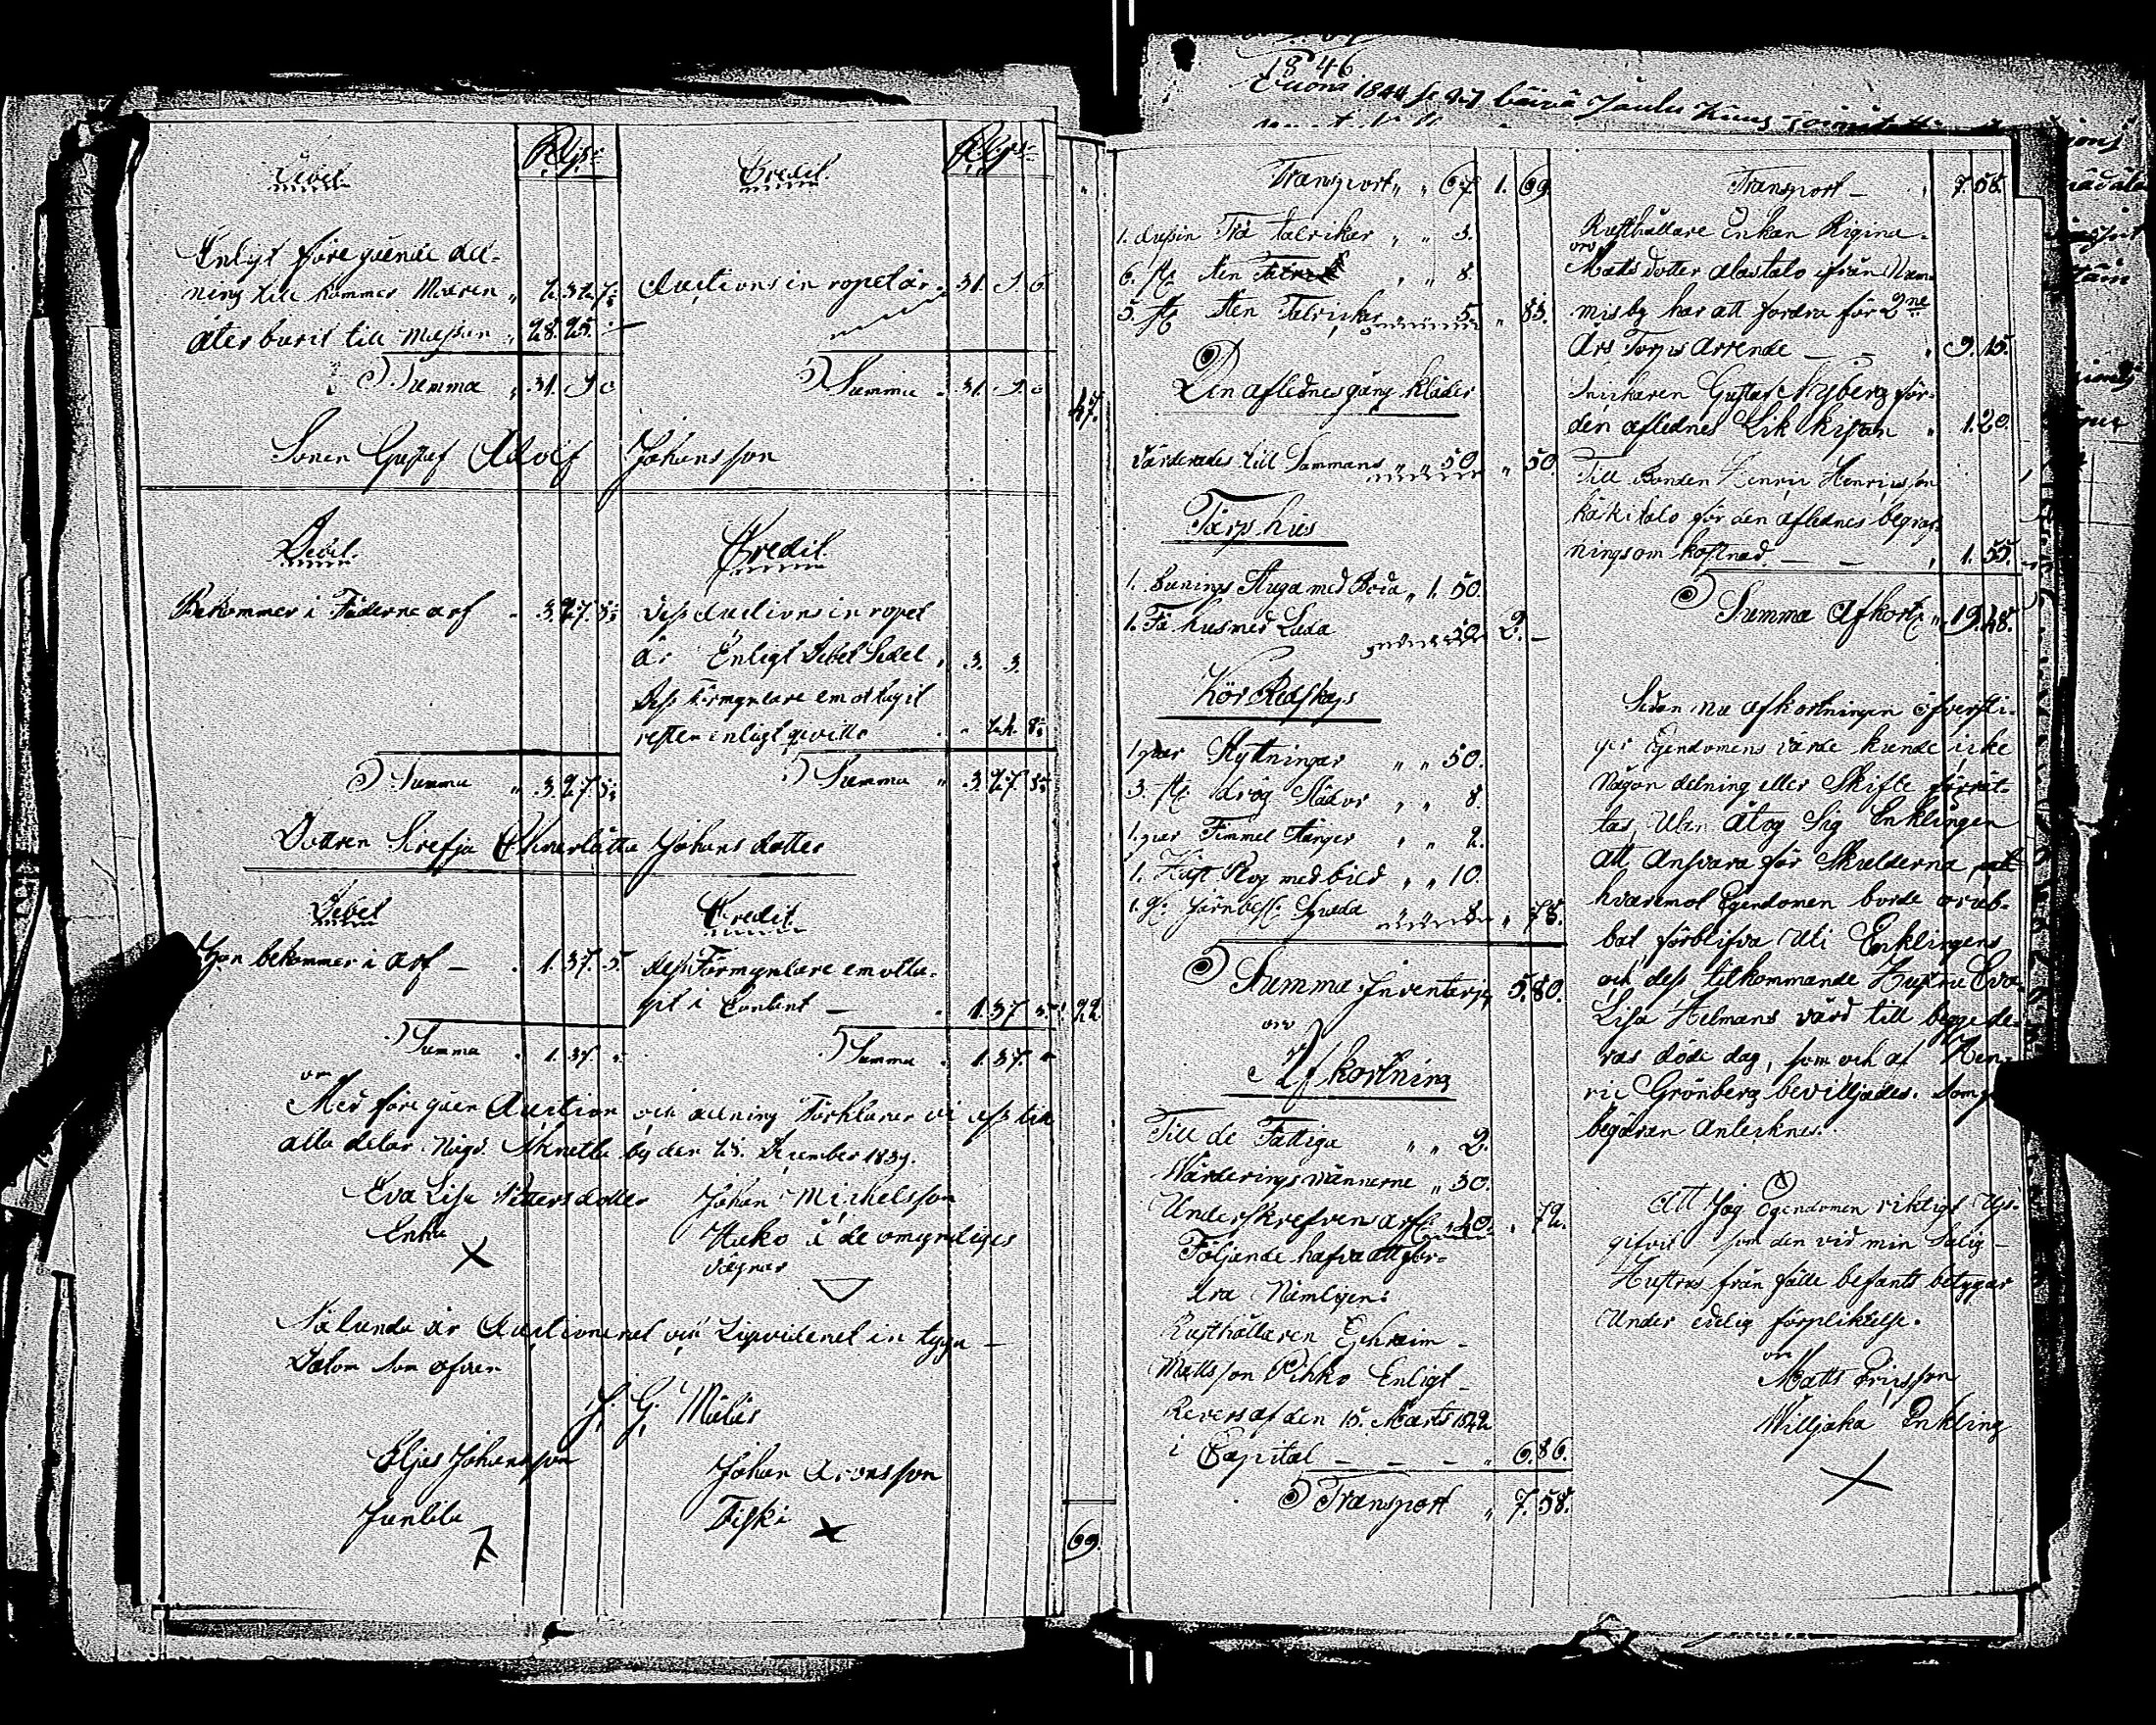 Debet Rbsr Credit Rbsr
Enligt föreguende del-
ning till kommer Modren " 2. 32. 7
Auctions in ropet är 31. 9. 6
åter burit till massan " 28. 25.
Summa " 31. 9. 6
Summa " 31. 9. 6
Sonen Gustaf Adolf Johansson
Debet. Credit.
Bekommer i Fäderne arf " 3. 27. 5
Dess Auctions in ropet
är Enligt Debet Sedel " 3. 3.
Dess Förmyndare emottagit
resten enligt qvitto " " 24. 8
Summa " 3. 27. 5
Summa " 3. 27. 5
Dottren Johans dotter
Debet Credit
Hon bekommer i arf — " 1. 37. 5
dess Förmyndare emotta-
git i Contant — " 1. 37. 5
Summa " 1. 37.
Summa " 1. 37.
Med före guen Auction och delning Förklarer vi oss till
alla delar Nögd. by den 23. December 1839.
Eva Lisa Petters dotter
Enka
X
Johan Michelsson
Uuko i de omyndiges
vägnar
Sålunda är Auctionerat och Liqviderat in tyga —
Datom som ofvan
J. G. Malus
Eljas Johansson
Junlila
Johan Aronsson
Fiski X
47.
22
69.
1846
Vuona 1844 se 27 Päivä Joulu Kuus toimitettin
Transport " " 67 1. 69
1. dussin Trä talrikar " " 3.
6. st. sten " " 8
5. st. sten Talrickar " 5. " 83.
Den aflednes gång kläder
Värderades till Sammans " " 50 " 50
Torp hus
1. Bonings Stuga med Boda " 1. 50.
1. Fä hus med Lada 50 2. —
Kör Redskaps
1. par Skytningar " " 50.
3. st. drög Slädor " " 8.
1. par Fimmel Stänger " " 2.
1. Plog med bild " " 10.
1. st. Jernbesl. Spada 8 " 78.
Summa Inventarij 5. 80.
Afkortning
Till de Fattiga " " 2.
Wärderingsmännerne " 30.
Underskrefven arf " 40. " 72.
Följande hafva att for-
dra Nämligen:
Rusthållaren Ephraim —
Mattsson Pihko Enligt —
Revers af den 15. Marts 1842
i Capital — — — " 6. 86.
Transport " 7. 58.
Transport — " 7. 58.
Rusthållare Enkan Rigina
Matts dotter Alastalo ifrån Num-
mis by har att fordra för 2ne
Års Torps Arrende — — " 9. 15.
Snickaren Gustaf Nyberg för
den aflednes Lik kistan " 1. 20.
Till Bonden Henric Henricsson
Käkitalo för den aflednes begraf-
ningsom kostnad. — — " 1. 55.
Summa Afkort " 19. 48.
Sedan nu afkortningen öfversti-
ger Egendomens värde kunde icke
någon delning eller Skifte förrät-
tas, Utan åtog Sig Enklingen
att Ansvara för Skulderna
hvaremot Egendomen borde orub-
bat förblifva Uti Enklingens
och dess tilkommande Hustru Eva
Lisa Helmans vård till begge de-
ras döde dag, som och af Hen-
ric Grönberg bevilljades. Som på
begäran Antecknes.
Att Jag Egendomen riktigt Up-
gifvit som den vid min Salig —
Hustrus från fälle befants betygar
Under edelig förpliktelse.
Matts Ericsson
Willjaka Enkling
X